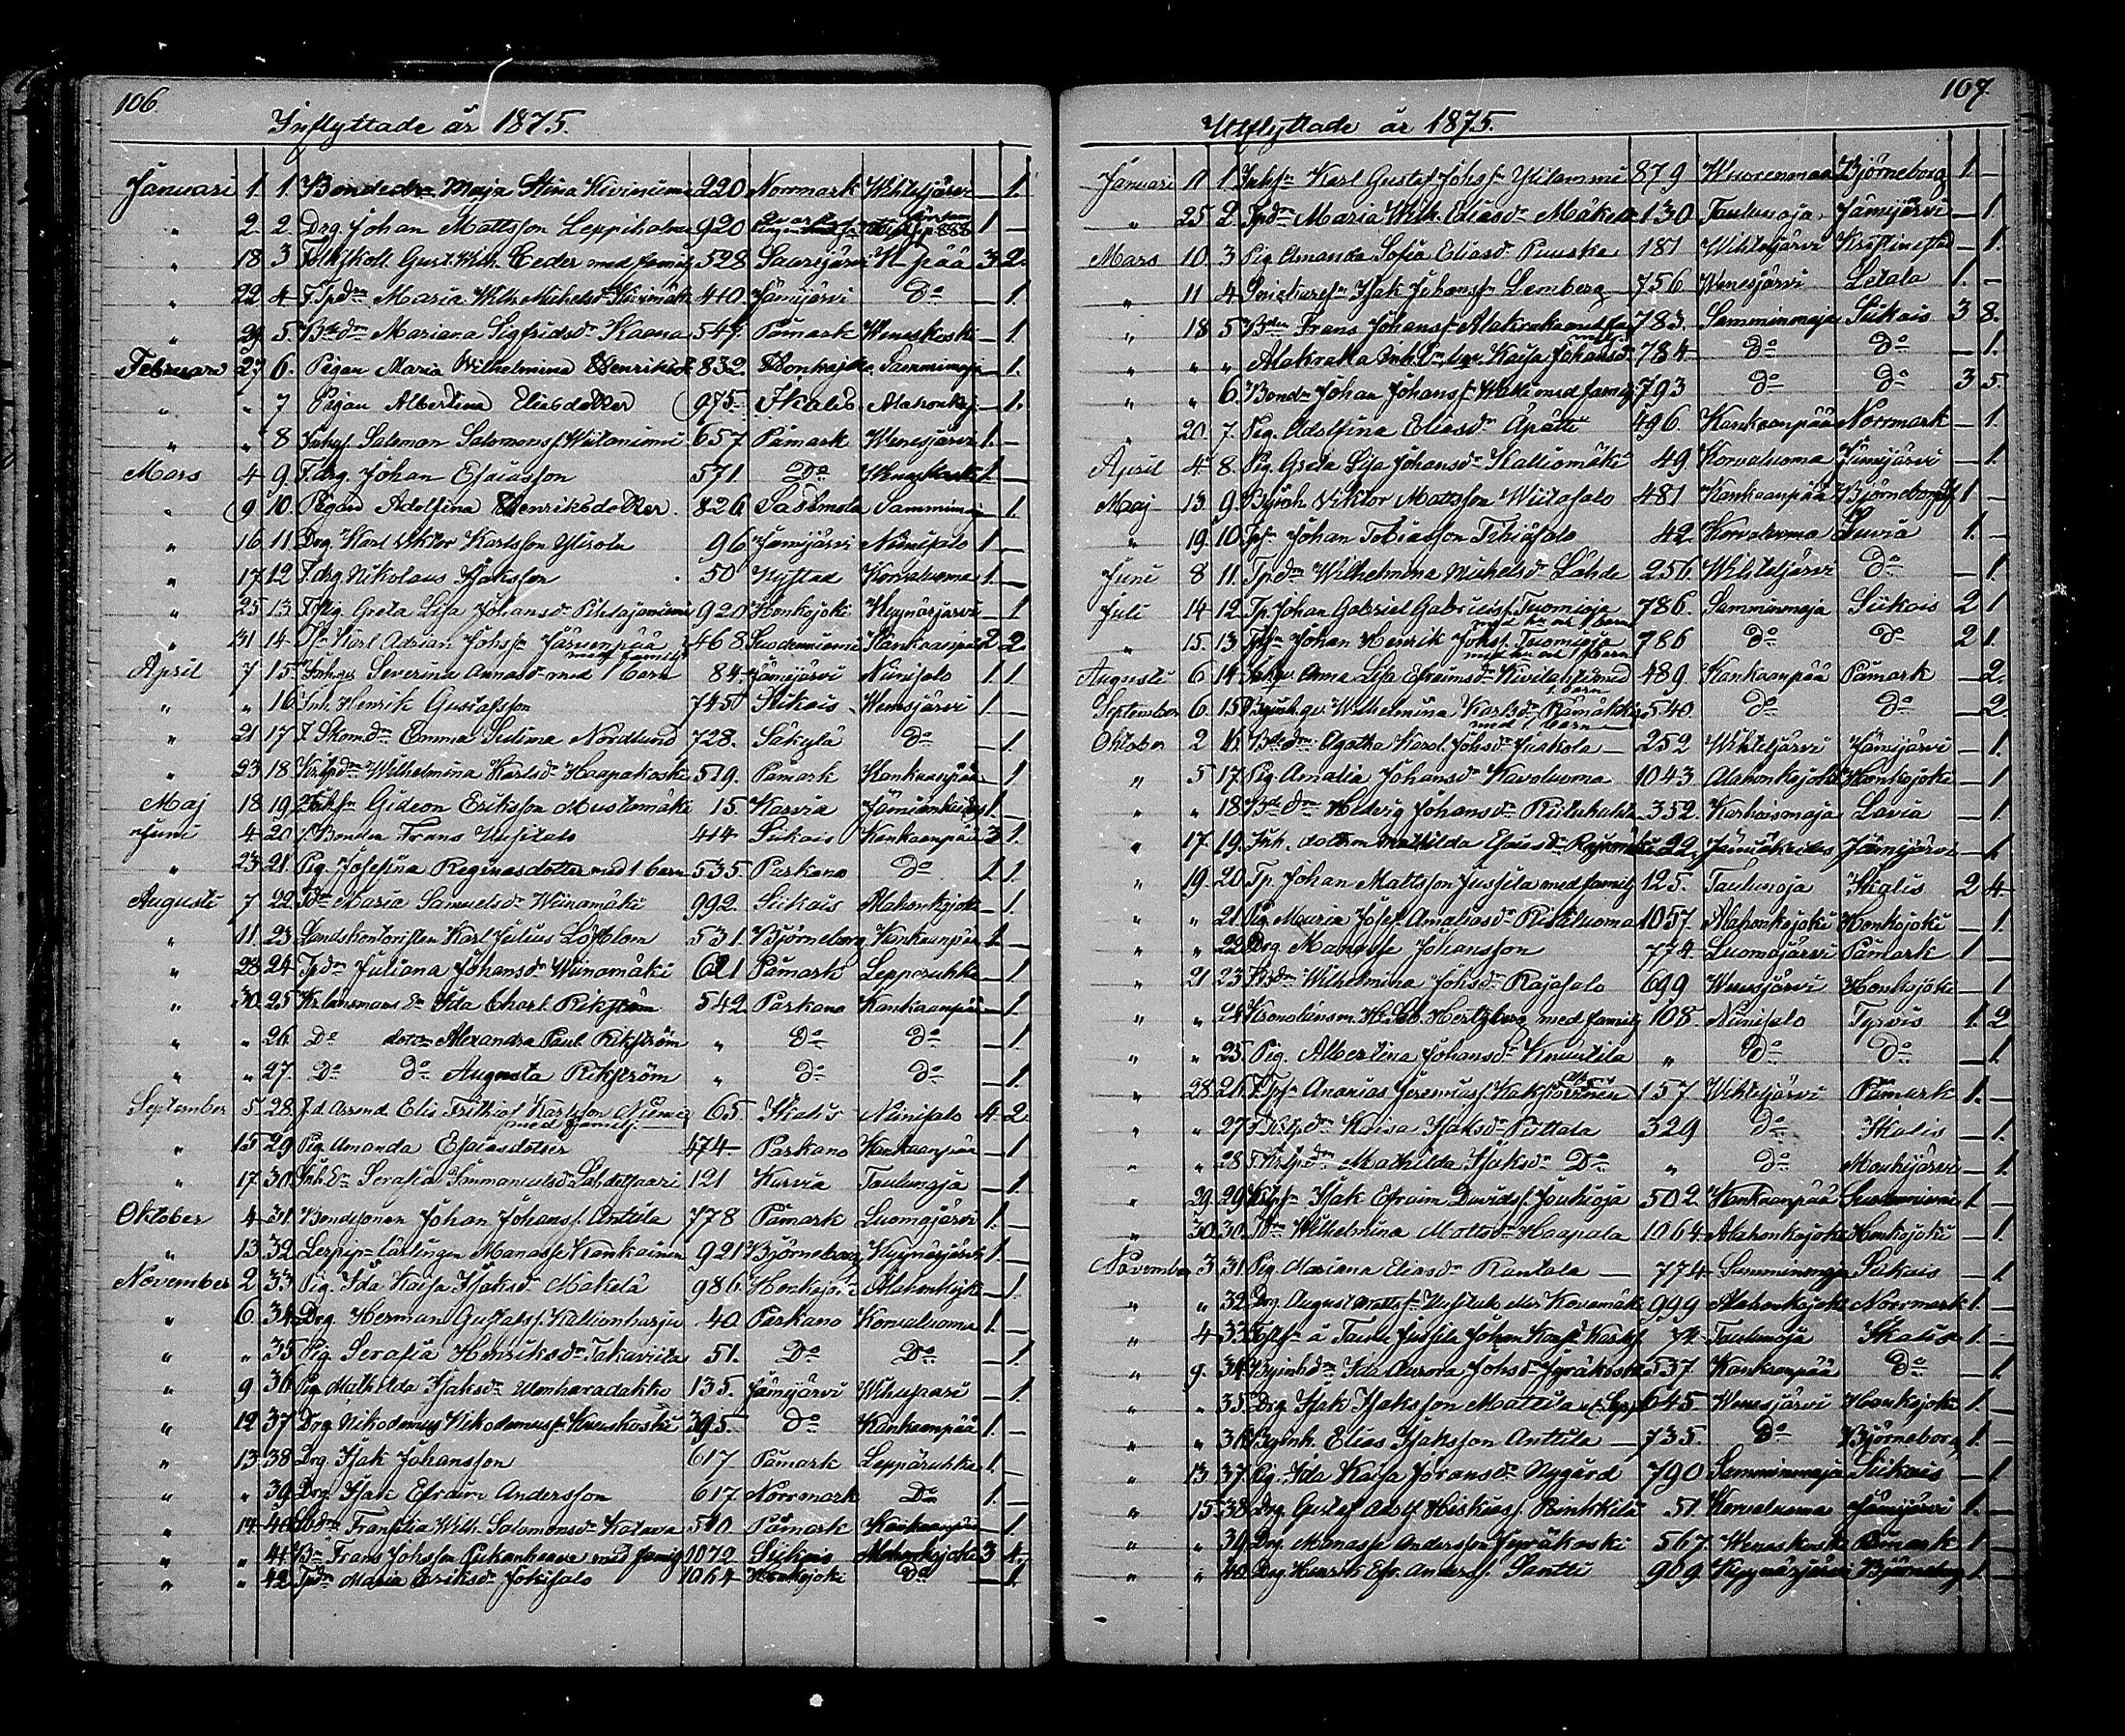 106.
Inflyttade år 1875.
Januari 1. 1. Bondedr Maja Stina Kiviniemi 220 Norrmark Wihteljärvi — 1.
" 2. 2. Drg. Johan Mattsson Leppiholm 920 1 —
" 18 3 Gust. Wilh. Ceder med familj 528 K pää 3 2.
" 22 4 F. Tpdr Maria Wilh. Michelsdr 440 Jämijärvi Do — 1.
" 29. 5. Bddr Mariana Sigfridsdr Kaena 547. Påmark Weneskoski — 1
Februari 27 6. Pigan Maria Wilhelmina Henriksdr 832. Honkajoki Samminmaja — 1.
" " 7 Pigan Albertina Eliasdotter 975. Ikalis Alahonkaj. — 1.
" " 8 Inhys. Salomon Salomonss. Wiitaniemi 657 Påmark Wenesjärvi 1. —
Mars 4 9. F. drg. Johan Esaiasson 571. Do Weneskoski 1 —
" 9 10. Pigan Adolfina Henriksdotter. 826 Sastmola Sammimaj — 1
" 16 11 Drg. Karl Viktor Karlsson Ylisola 96 Jämijärvi Niinisalo 1 —
" 17. 12 F. drg. Nikolaus Isaksson 50 Nystad Korvaluoma 1. —
" 25 13 F. Pig. Greta Lisa Johansdr Pihlajaniemi 920 Honkajoki Kyynärjärvi — 1
" 31 14 Karl Adrian Johss. Järvenpää med familj 468 Suodenniemi Kankaanpää 2 2.
April 7 15. Inhys. Severina Annasdr med 1 barn 84. Jämijärvi Niinisalo 1 1
" " 16 Inh. Henrik Gustafsson 745 Siikais Wenesjärvi 1 —
" 21 17 Emma Selima Nordlund 728. Säkylä do — 1.
" 23 18 Wilhelmina Karlsdr Haapakoski 519. Påmark Kankaanpää — 1
Maj 18 19. Gideon Eriksson Mustamäki 15. Karvia Jämiänkeidas 1. —
Juni 4 20 f. Bonden Frans Uusitalo 444 Siikais Kankaanpää 3 1.
" 23 21. Pig. Josefina Reginasdotter med 1 barn 535 Parkano Do 1 1.
Augusti 7 22. Maria Samuelsdr Wiinamäki 992. Siikais Alahonkajoki — 1.
" 11. 23 Landskontoristen Karl Julius Löfblom 531. Björneborg Kankaanpää 1 —
" 28 24 Tpdr Juliana Johansdr Wiinamäki 621 Påmark Leppäruhka — 1
" 30. 25 Kr. länsmans dr Ida Charl. Rikström 542 Parkano Kankaanpää — 1.
" " 26. Do dotter Alexandra Paul. Rikström " Do do — 1.
" " 27. Do do Augusta Rikström " do do — 1.
September 5 28. Arrend. Elis Frithiof Karlsson Niemi med familj 65. Ikalis Niinisalo 4 2
" 15 29 Pig. Amanda Esaiasdotter 474 Parkano Kankaanpää — 1
" 17 30 Inh. dr Serafia Immanuelsdr Lähdessaari 121 Karvia Taulunoja — 1.
Oktober 4 31. Bondsonen Johan Johanss. Antila 778 Påmark Luomajärvi 1. —
" 13 32 Manasse Kankainen 921 Björneborg Kyynärjärvi 1. —
November 2 33 Pig. Ida Kaisa Isaksdr Mäkelä 986. Honkajoki Alahonkajok — 1.
" 6. 34 Drg. Herman Gustafss. Kallionharju 40 Parkano Korvaluoma 1. —
" " 35 Pig. Serafia Henriksdr Takaviita 51. Do Do — 1.
" 9 36 Pig. Mathilda Isaksdr 135. Jämijärvi — 1
" 12 37 Drg. Nikodemus Nikodemuss. 395. do Kankaanpää 1. —
" 13 38 Drg. Isak Johansson 617 Påmark Leppäruhka 1. —
" " 39 Drg. Isak Efraim Andersson 617 Norrmark Do 1. —
" 14 40 Fransilia Wilh. Salomonsdr Katava 510 Påmark Kankaanpää — 1.
" " 41 Frans Johsson med familj 1072 Siikais Alahonkajoki 3 4.
" " 42 Tpdr Maria Eriksdr Jokisalo 1064 Honkajoki Do — 1
107.
Utflyttade år 1875.
Januari 11 1 Karl Gustaf Johss. Ylilammi 879 Wuorenmaa Björneborg 1. —
" 25 2. Tpdr Maria Wilh. Eliasdr Mäkelä 130 Taulunoja Jämijärvi — 1.
Mars 10 3 Pig. Amanda Sofia Eliasdr Puuska 181 Wihteljärvi Kristinestad — 1.
" 11 4 Isak Johanss. Lemberg 756 Wenesjärvi Letala 1. —
" 18 5 Frans Johanss. Alakraka med familj 783. Samminmaja Siikais 3 8.
" " " Alakraka Inh. Kaisa Johansdr 784 do do — 1.
" " 6. Bonden Johan Johanss. med familj 793 do do 3 5.
" 20 7. Pig. Adolfina Eliasdr Äpätti 496. Kankaanpää Norrmark — 1.
April 4 8. Pig. Greta Lisa Johansdr Kalliomäki 49 Korvaluoma Jämijärvi — 1.
Maj 13 9. Viktor Mattsson Wiitasalo 481 Kankaanpää Björneborg 1 —
" 19. 10. Johan Tobiasson 42. Korvaluoma Luvia 1. —
Juni 8 11. Tpdr Wilhelmina Michelsdr Lähde 256. Wihteljärvi do — 1.
Juli 14 12. Tp. Johan Gabriel Gabrielss. Tuomioja med hu o. 1 barn 786. Samminmaja Siikais 2 1
" 15. 13 Johan Henrik Johss. Tuomioja med hu och 1 barn 786 do do 2 1.
Augusti 6 14 Anna Lisa Efraimsdr med 1 barn 489. Kankaanpää Påmark — 2.
September 6. 15 Wilhelmina Karlsdr Rämäkki med 1 barn 540. do do — 2.
Oktober 2 16. Bddr Agatha Karol. Johsdr Juskola 252 Wihteljärvi Jämijärvi — 1.
" 5 17. Pig. Amalia Johansdr Kavoluoma 1043. Alahonkajoki Honkajoki — 1
" " 18 Hedvig Johansdr Ristahalla 352. Karhoismaja Lavia — 1
" 17. 19. Inh. dottern Mathilda Esaiasdr 22. Jämiäkeidas Jämijärvi — 1
" 19. 20 Tp. Johan Mattsson Jussila med familj 125. Taulunoja Ikalis 2 4
" " 21. Pig. Maria Josef. Amaliasdr Riskuluoma 1057. Alahonkajoki Honkajoki — 1.
" " 22 Drg Manasse Johansson 774. Luomajärvi Påmark 1 —
" 21 23 Wilhelmina Johsdr Rajasalo 699 Wenesjärvi Honkajoki — 1
" " 24 Kronolänsm. Hertzberg med familj 108. Niinisalo Tyrvis 1. 2
" " 25 Pig. Albertina Johansdr Knuutila " do do — 1
" 28 26 Ananias Jeremiass. 157. Wihteljärvi Påmark 1. —
" " 27 Kaisa Isaksdr Puttala 329 do Ikalis — 1.
" " 28 Mathilda Isaksdr Do " do Mouhijärvi — 1
" 29. 29 Isak Efraim Davidss. Jouhioja 502. Kankaanpää Suodenniemi — 1
" 30 30. Wilhelmina Mattsdr Haapala 1064 Alahonkajoki Honkajoki — 1
November 3 31. Pig. Mariana Eliasdr Rantala 774 Samminmaja Siikais — 1
" " 32 Drg. August Mattss. Uusitalo eller Kovamäki 999 Alahonkajoki Norrmark 1. —
" 4 33 Johan Karlss. 72 Taulunoja Ikalis 1 —
" 9. 34 Ida Aurora Johsdr Jyräkoski 537. Kankaanpää Do — 1
" " 35. Drg. Isak Isaksson Mattila 645. Wenesjärvi Honkajoki 1 —
" " 36 Elias Isaksson Anttila 735. Do Björneborg 1. —
" 13 37. Pig. Ida Kaisa Joransdr Nygård 790 Samminmaja Siikais — 1
" 15 38 Drg. Gustaf Adolf Hiskiass. 51. Korvaluoma Jämijärvi 1. —
" " 39 Drg. Manasse Andersson Jyräkoski 567 Weneskoski Påmark 1 —
" " 40 Drg. Henrik Efr. Anderss. Santti 909. Kyynärjärvi Björneborg 1. —